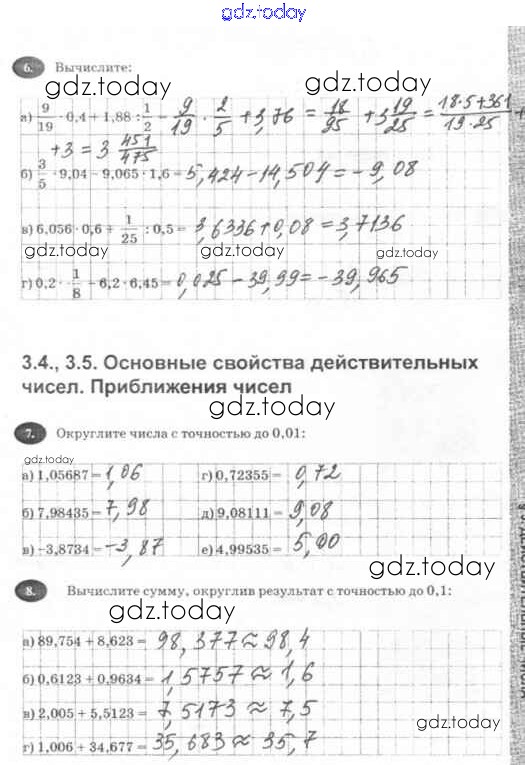 gdz.today
6. Вычислите:
gdz.today gdz.today
а) 9/19 · 0,4 + 1,88 : 1/2 = 9/19 · 2/5 + 3,76 = 18/95 + 3 19/25 = 18·5+361/19·25 +
+3 = 3 451/475
gdz.today
б) 3/5 · 9,04 − 9,065 · 1,6 = 5,424 − 14,504 = −9,08
в) 6,056 · 0,6 + 1/25 : 0,5 = 3,6336 + 0,08 = 3,7136
gdz.today gdz.today gdz.today
г) 0,2 · 1/8 − 6,2 · 6,45 = 0,025 − 39,99 = −39,965
3.4., 3.5. Основные свойства действительных
чисел. Приближения чисел
gdz.today
7. Округлите числа с точностью до 0,01:
gdz.today
а) 1,05687 = 1,06 г) 0,72355 = 0,72
б) 7,98435 = 7,98 д) 9,08111 = 9,08
в) −3,8734 = −3,87 е) 4,99535 = 5,00
gdz.today
8. Вычислите сумму, округлив результат с точностью до 0,1:
gdz.today
а) 89,754 + 8,623 = 98,377 ≈ 98,4
б) 0,6123 + 0,9634 = 1,5757 ≈ 1,6
в) 2,005 + 5,5123 = 7,5173 ≈ 7,5
gdz.today
г) 1,006 + 34,677 = 35,683 ≈ 35,7